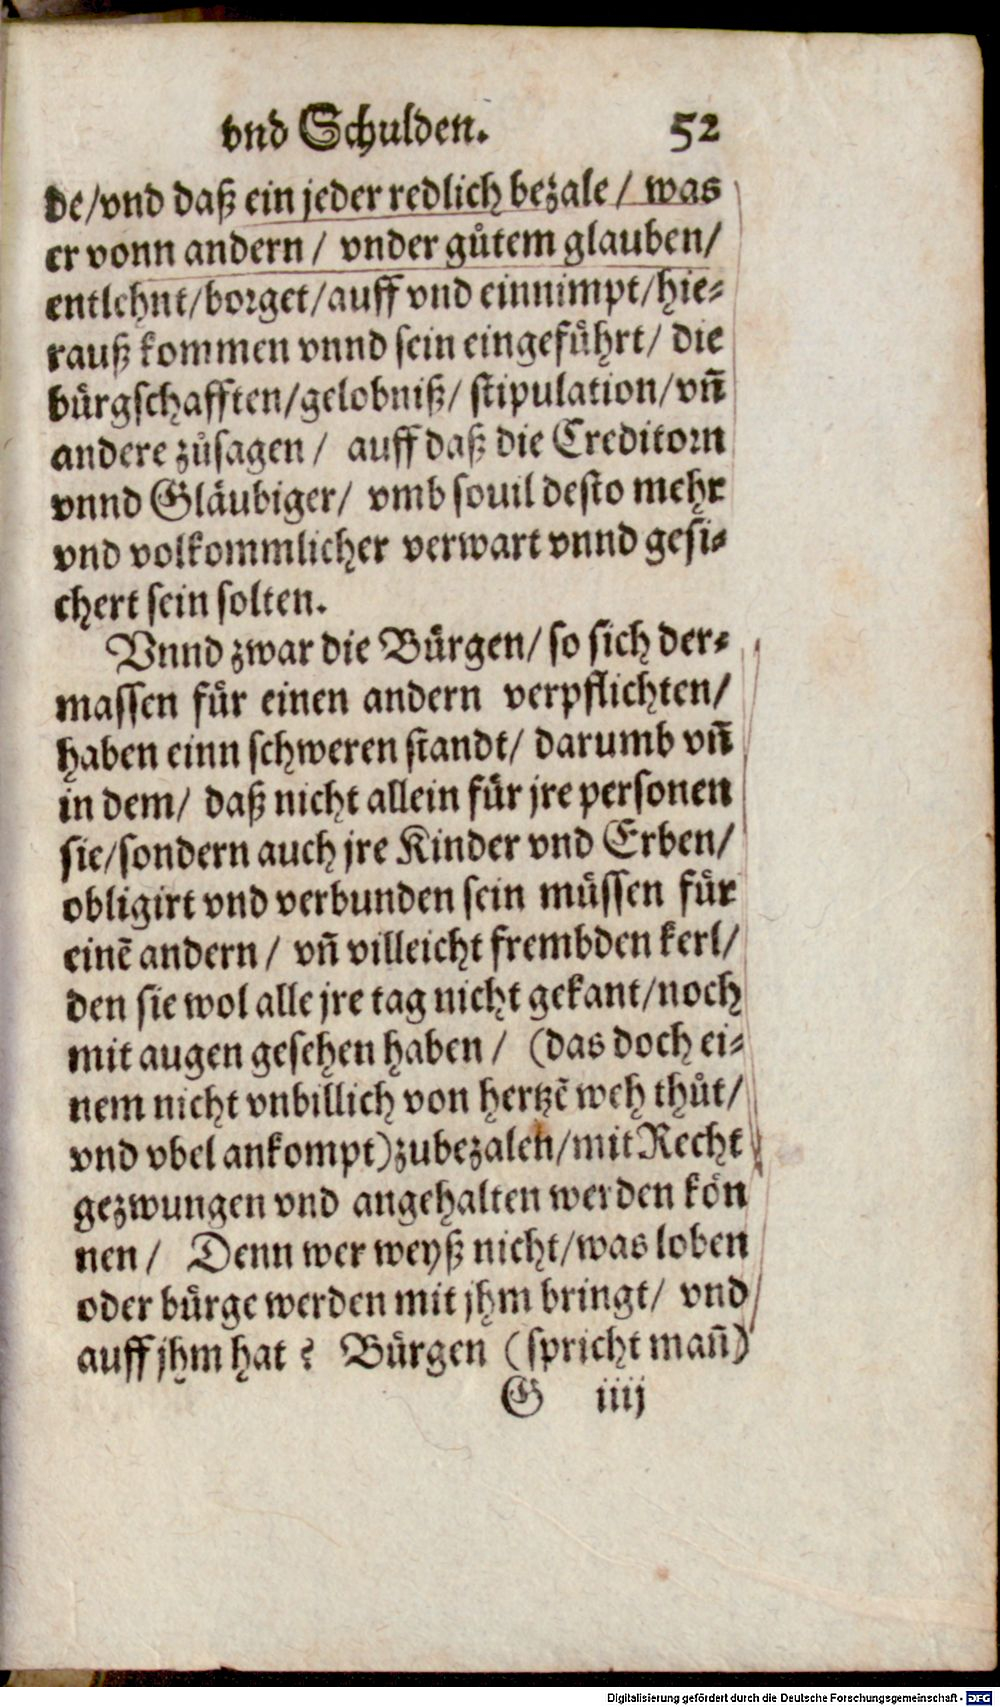 vnd Schulden. 52
de/vnd daß ein jeder redlich bezale/ was
er vonn andern/ vnder gůtem glauben/
entlehnt/borget/auff vnd einnimpt/hie-
rauß kommen vnnd sein eingefůhrt/ die
bürgschafften/gelobniß/ stipulation/vñ
andere zůsagen/ auff daß die Creditorn
vnnd Gläubiger/ vmb souil desto mehr
vnd volkommlicher verwart vnnd gesi-
chert sein solten.
Vnnd zwar die Bürgen/ so sich der-
massen für einen andern verpflichten/
haben einn schweren standt/ darumb vñ
in dem/ daß nicht allein für jre personen
sie/sondern auch jre Kinder vnd Erben/
obligirt vnd verbunden sein müssen für
einē andern/ vñ villeicht frembden kerl/
den sie wol alle jre tag nicht gekant/noch
mit augen gesehen haben/ (das doch ei-
nem nicht vnbillich von hertzē weh thůt/
vnd vbel ankompt) zubezalen/mit Recht
gezwungen vnd angehalten werden kön
nen/ Denn wer weyß nicht/was loben
oder bürge werden mit jhm bringt/ vnd
auff jhm hat? Bürgen (spricht mañ)
G iiij
Digitalisierung gefördert durch die Deutsche Forschungsgemeinschaft - DFG